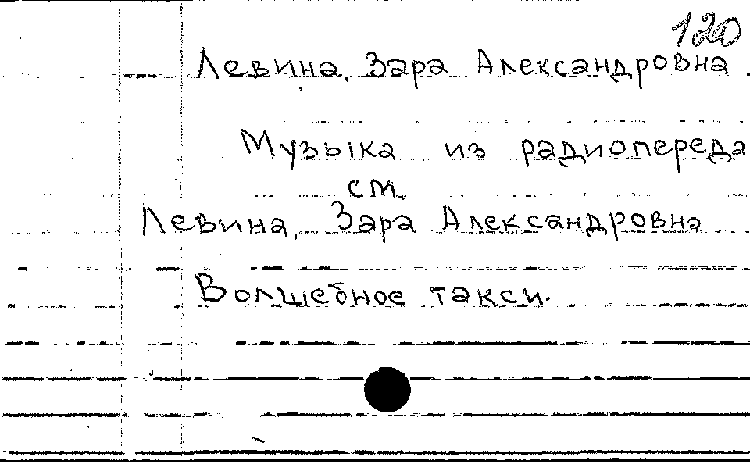 120
Левина, Зара Александровна.
Музыка из радиопереда
см.
Левина, Зара Александровна
Волшебное такси.